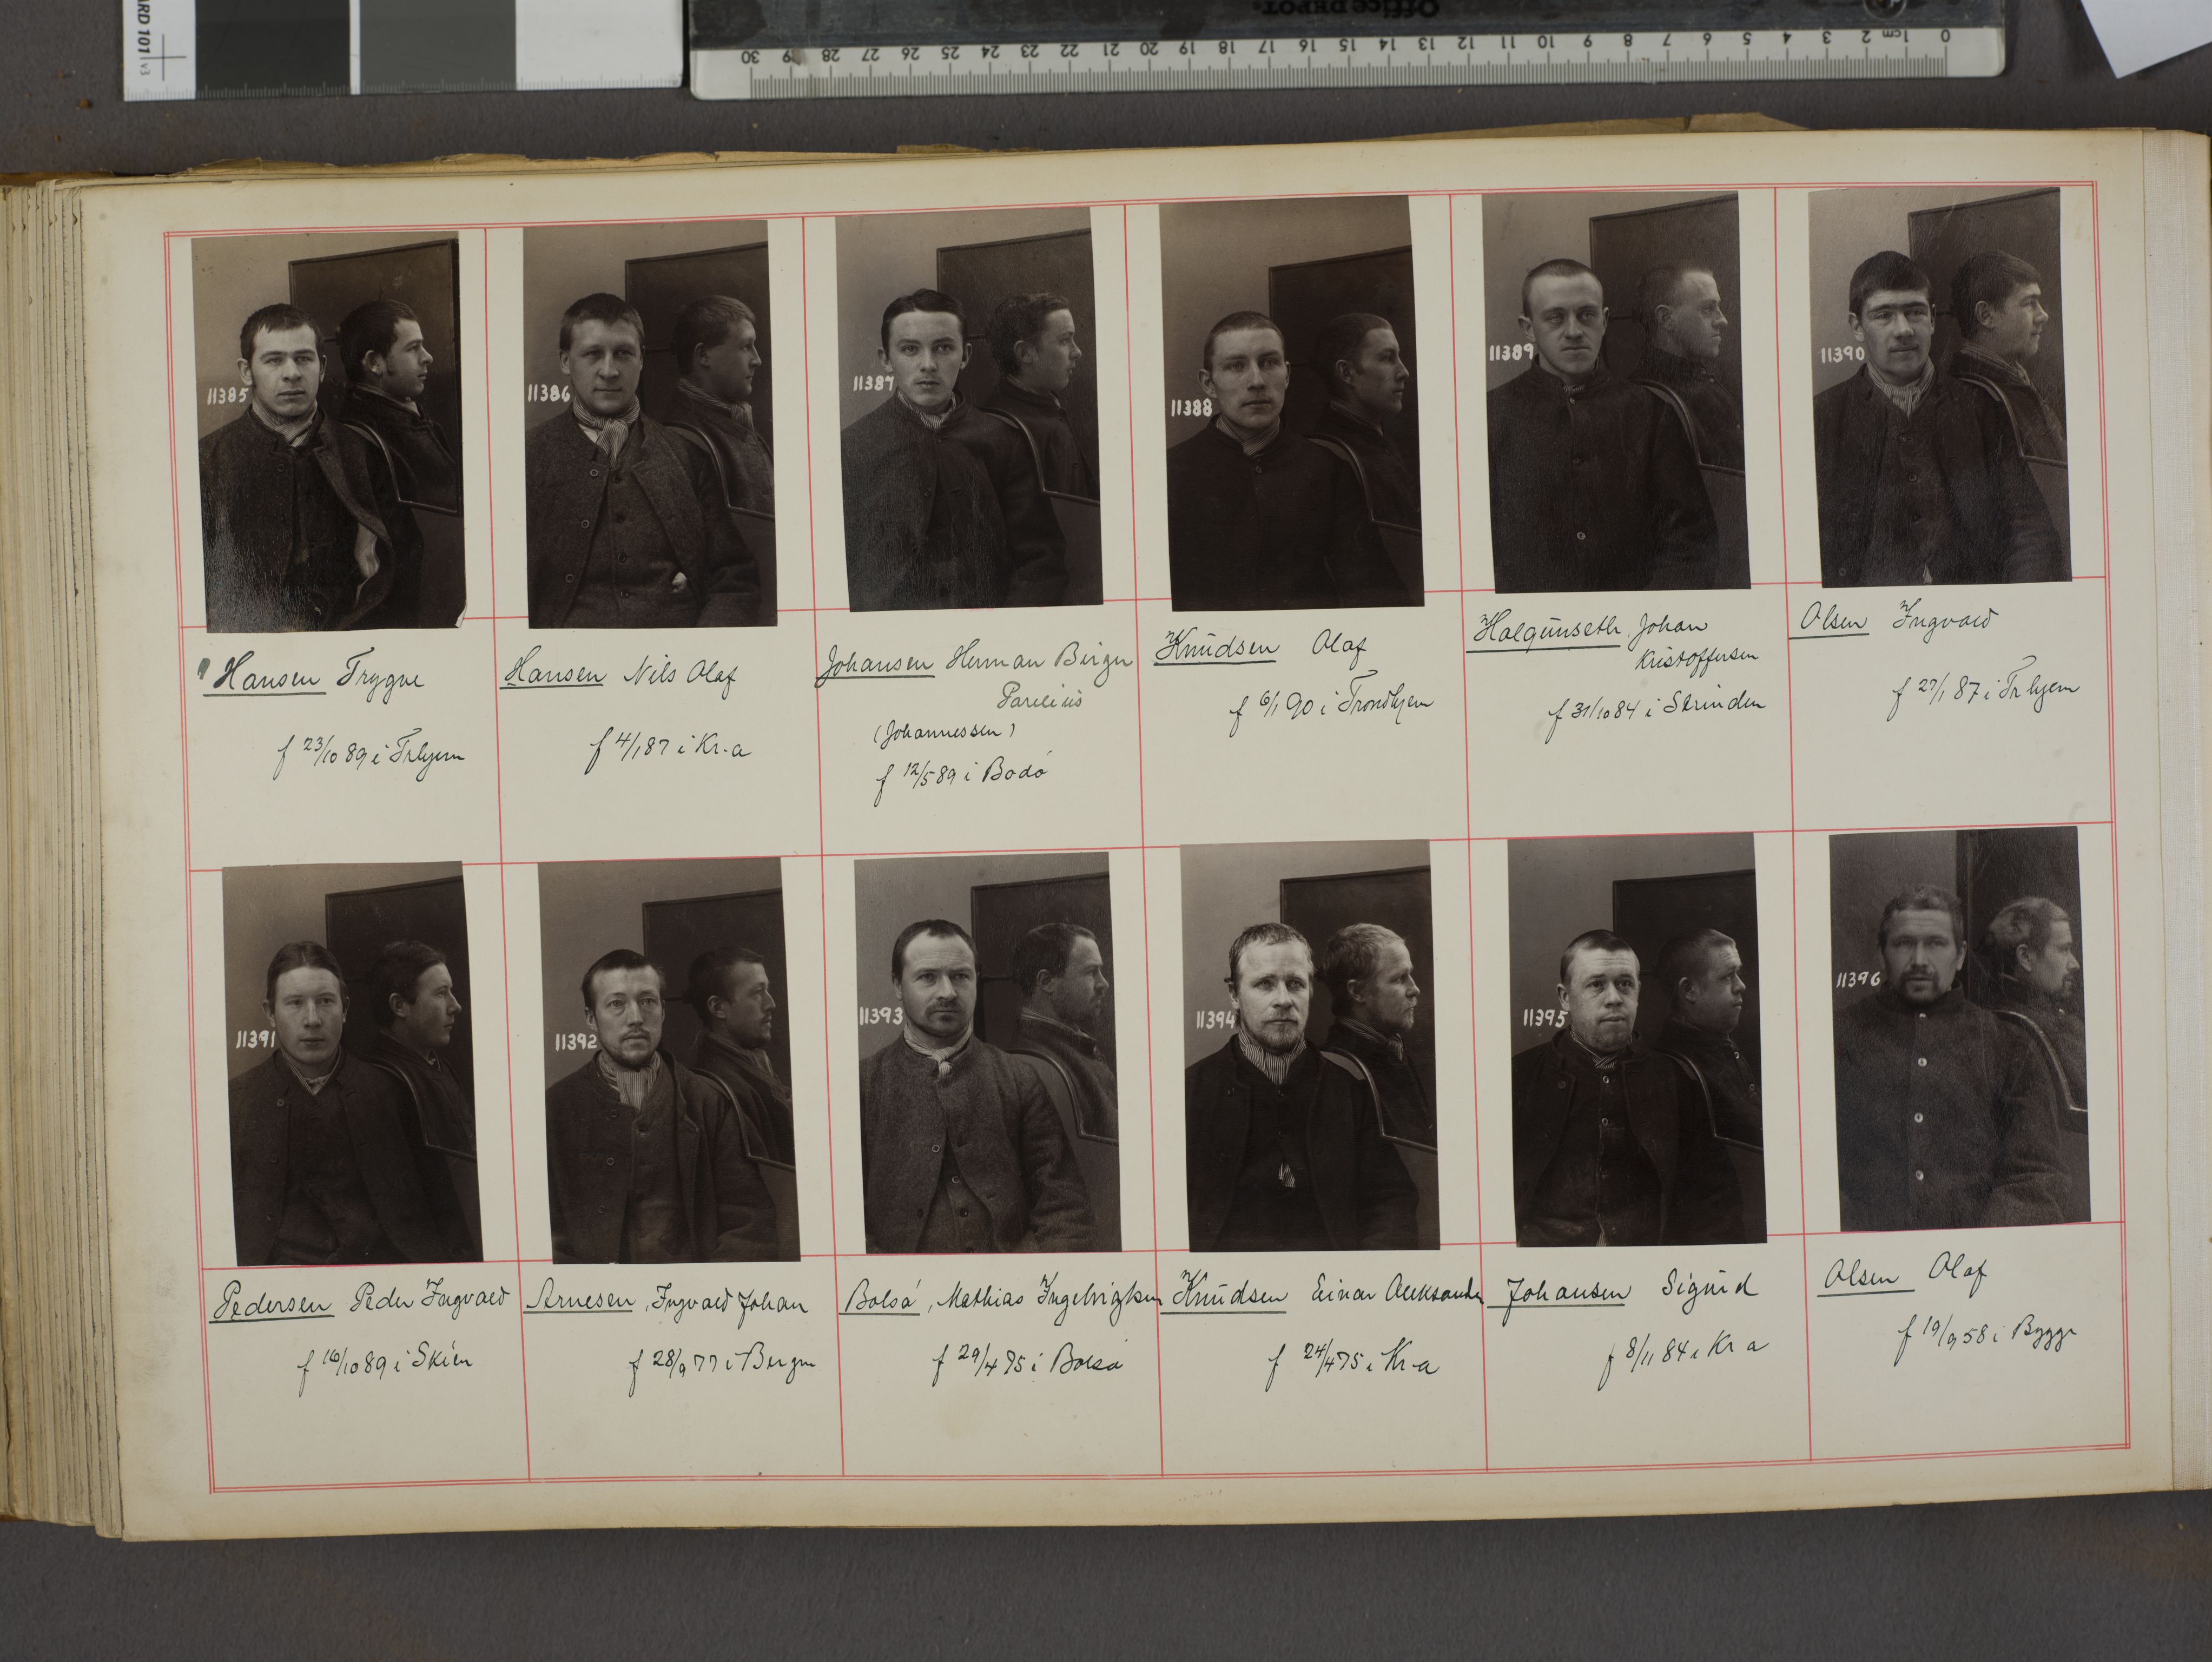 ARD 101 v3
Office DEPOT
30 29 28 27 26 25 24 23 22 21 20 19 18 17 16 15 14 13 12 11 10 9 8 7 6 5 4 3 2 1cm 0
11385
11386
11387
11388
11389
11390
Hansen Trygve
f 23/10 89 i Trhjem
Hansen Nils Olaf
f 4/1 87 i Kr.a
Johansen Herman Birger
Parelius
(Johannessen)
f 12/5 89 i Bodö
Knudsen Olaf
f 6/1 90 i Trondhjem
Halgunseth, Johan
Kristoffersen
f 31/10 84 i Strinden
Olsen Ingvald
f 27/1 87 i Trhjem
11391
11392
11393
11394
11395
11396
Pedersen Peder Ingvald
f 16/10 89 i Skien
Arnesen, Ingvald Johan
f 28/9 77 i Bergen
Bolsö, Mathias
f 29/4 75 i Bolsö
Knudsen Einar Aleksander
f 24/4 75 i Kr.a
Johansen Sigurd
f 8/11 84 i Kr a
Olsen Olaf
f 19/9 58 i